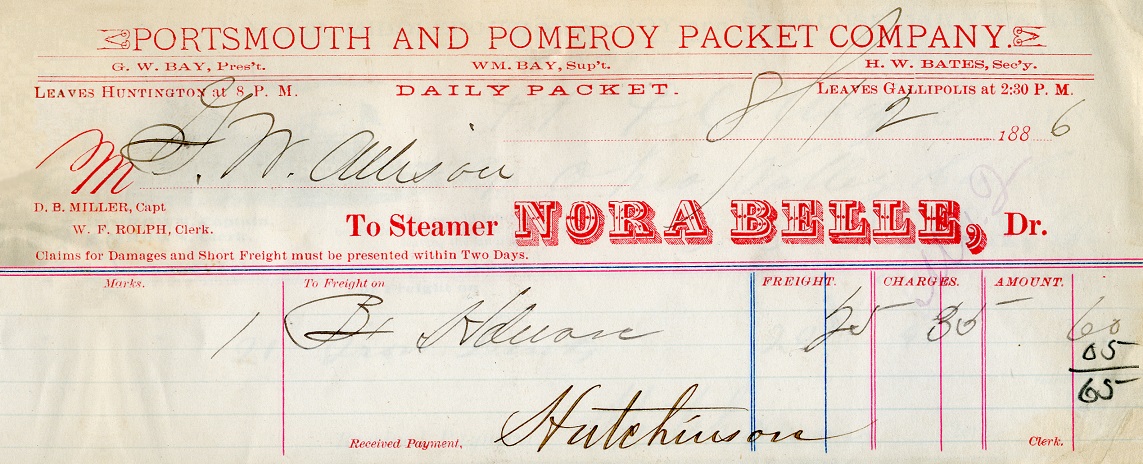 PORTSMOUTH AND POMEROY PACKET COMPANY.
G. W. BAY, Pres't. WM. BAY, Sup't. H. W. BATES, Sec'y.
LEAVES HUNTINGTON at 8 P. M. DAILY PACKET. LEAVES GALLIPOLIS at 2:30 P. M.
8/12 1886
M T. W. Allison
D. B. MILLER, Capt
W. F. ROLPH, Clerk.
To Steamer NORA BELLE, Dr.
Claims for Damages and Short Freight must be presented within Two Days.
Marks. To Freight on FREIGHT. CHARGES. AMOUNT.
1 25 35 60
05
65
Received Payment, Hutchinson Clerk.